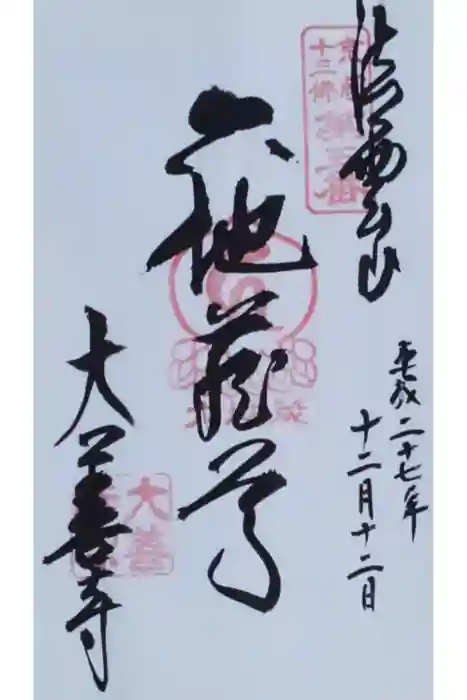 京都
十三佛
第五番
法雲山
平成二十七年
十二月十二日
六地蔵尊
大善寺
大善